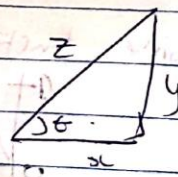 z
y
θ
x